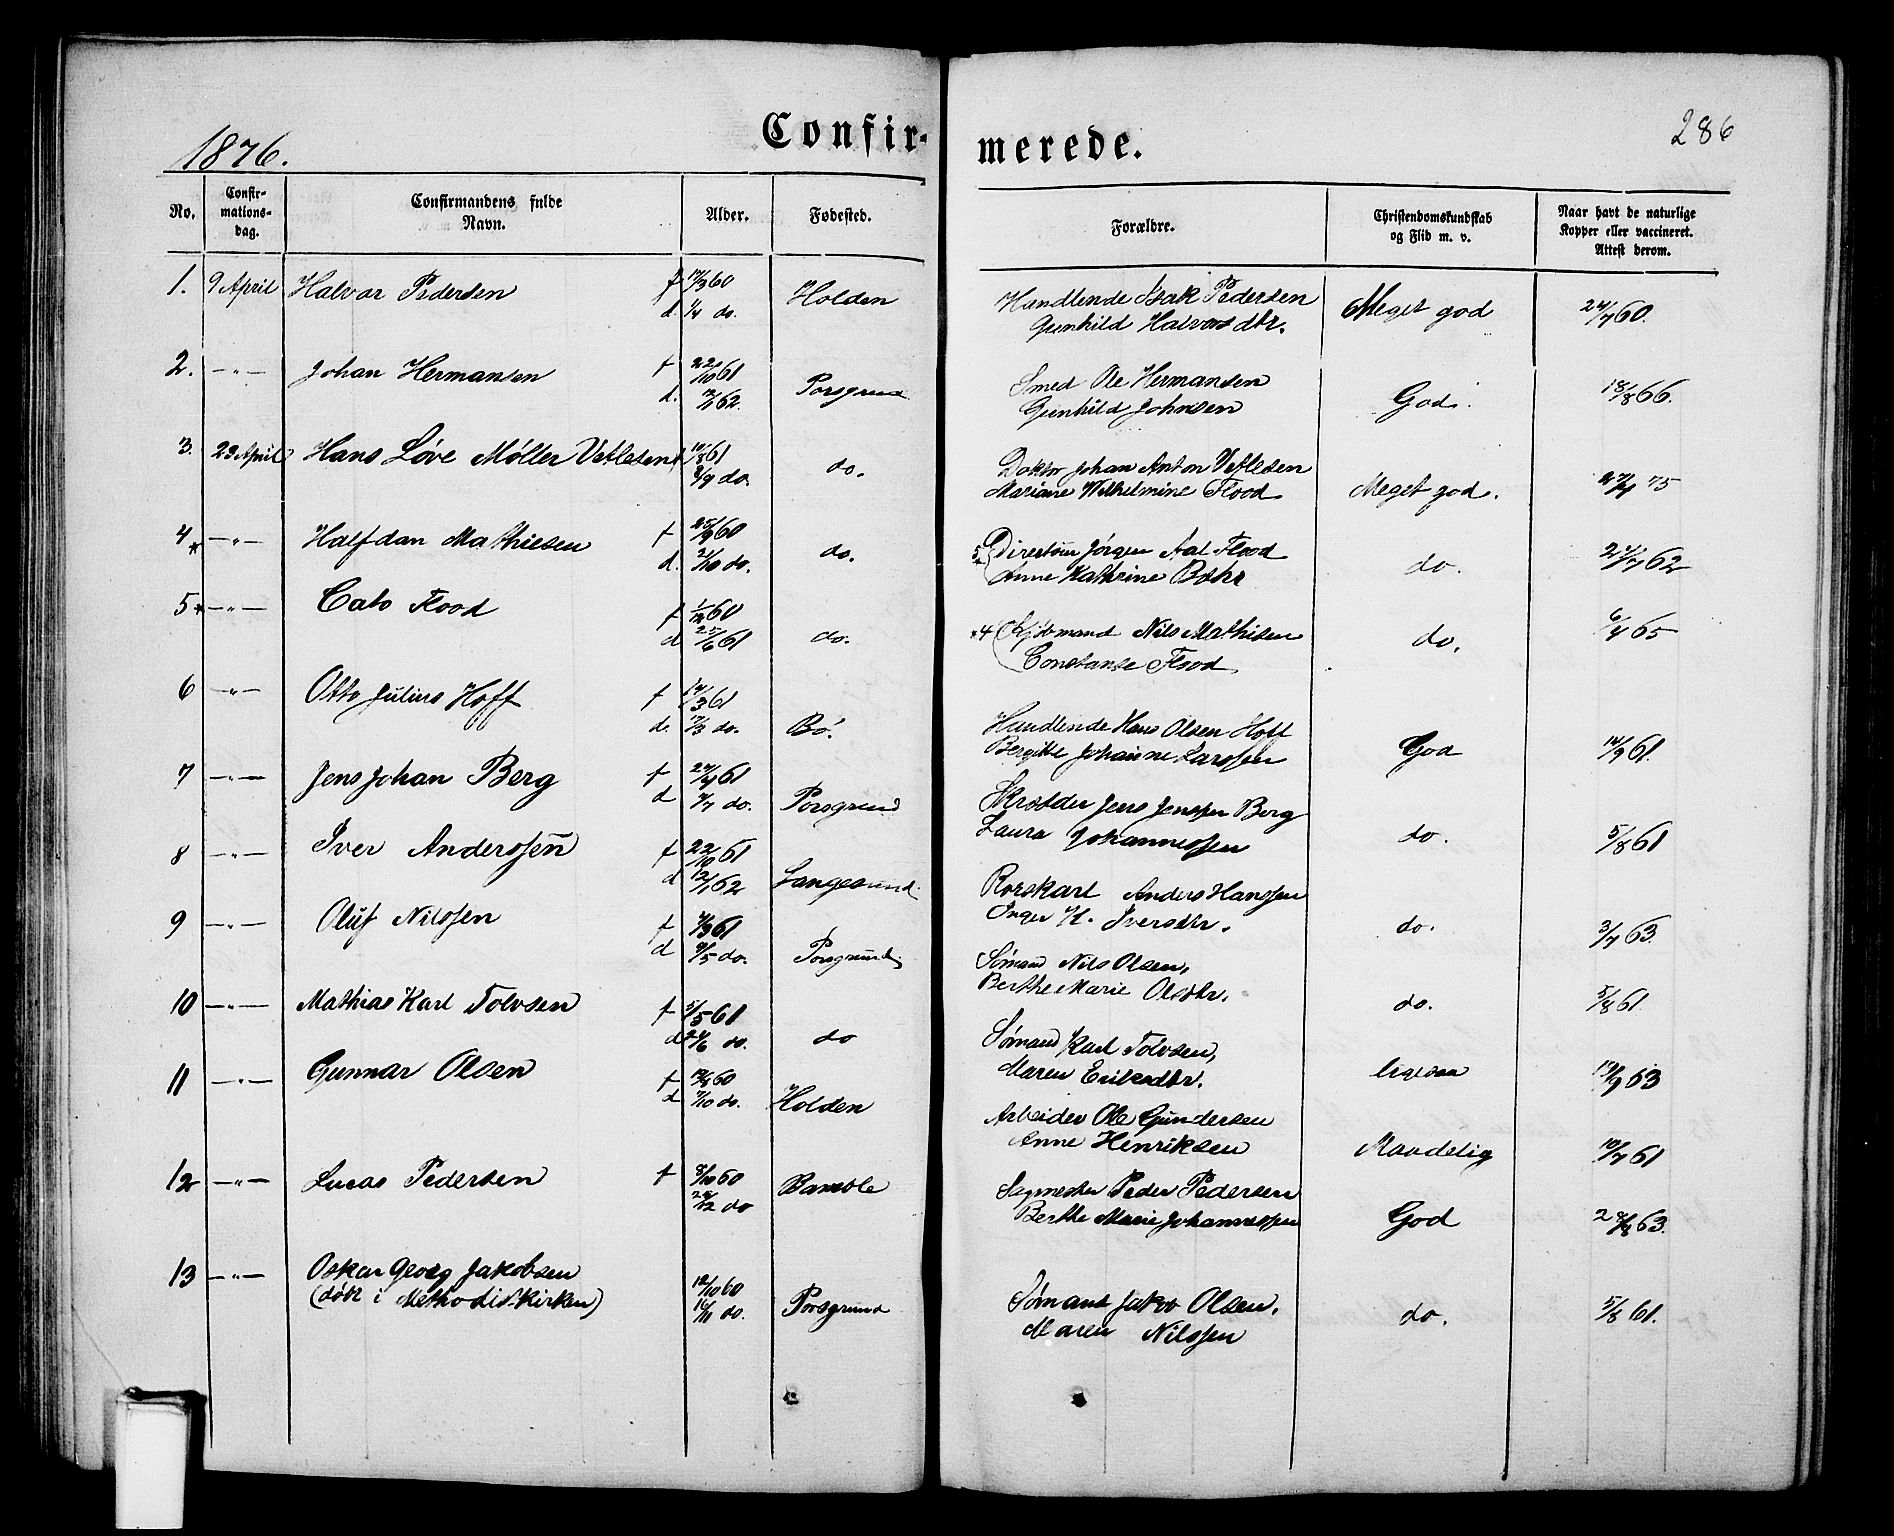 1876.
Confir-
merede.
286
No.
Confir-
mations-
dag.
Confirmandens fulde
Navn.
Alder.
Fødested.
Forældre.
Christendomskundskab
og Flid m. v.
Naar havt de naturlige
Kopper eller vaccineret.
Attest derom.
1. 9 April Halvor Pedersen f 17/3 60 Holden Handlende Isak Pedersen Meget god 24/7 60.
d. 1/4 do. Gunhild Halvorsdtr.
2. -"- Johan Hermansen f 22/10 61 Porsgrund Smed Ole Hermansen God. 18/8 66.
d. 12/1 62. Gunhild Johnsen
3. 23 April Hans Løve Møller Vetlesen f 11/8 61 do. Doktor Johan Anton Vetlesen Meget god. 27/4 75
8/9 do. Mariane Wilhelmine Flood
4* -"- Halfdan Mathiesen f 25/9 60 do. 5* Direktøur Jørgen Aal Flood do. 24/7 62
d. 21/10 do. Anne Kathrine Bæhr
5* -"- Cato Flood f 1/12 60 do. *4 Kjøbmand Nils Mathisen do. 6/4 65
d 25/6 61 Constanse Flood
6 -"- Otto Julius Hoff f 14/3 61 Bø. Handlende Hans Olsen Hoff God 14/9 61.
d. 17/3 do. Bergitte Johanne Larssen
7 -"- Jens Johan Berg f 24/4 61 Porsgrund Skrædder Jens Jenssen Berg do. 5/8 61
d 7/7 do. Laura Johannessen
8 -"- Iver Anderssen f 22/10 61 Langesund. Rorskarl Anders Hanssen do. 3/7 63.
d 12/1 62 Inger H. Iversdtr.
9 -"- Oluf Nilssen f 4/3 61 Porsgrund. Sømand Nils Olsen, do. 5/8 61.
d 9/5 do. Berthe Marie Olsdtr.
10 -"- Mathias Karl Tolvsen f 5/5 61 do Sømand Karl Tolvsen, ligesaa 17/9 63
d 24/6 do. Maren Eriksdtr.
11 -"- Gunnar Olsen f 60 Holden Arbeider Ole Gundersen Maadelig 10/7 61
d 7/10 do. Anne Henriksen
12 -"- Lucas Pedersen f 8/10 60 Bamble Sagmester Peder Pedersen God 63.
26/12 do Berthe Marie Johannessen
13 -"- Oskar Georg Jakobsen 12/10 60 Porsgrund Sømand Jakob Olsen, do. 5/8 61.
(døbt i Methodistkirken) 16/11 do. Maren Nilssen